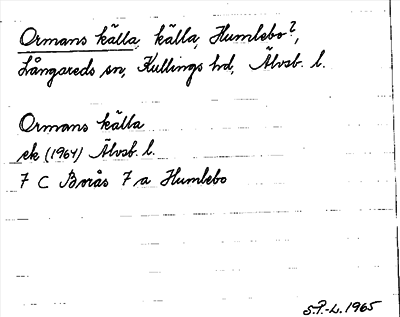 Ormans källa, källa, Humlebo?,
Långareds sn, Kullings hd, Älvsb. l.
Ormans källa
ek (1964) Älvsb. l.
7 C Borås 7 a Humlebo
S.P.-L. 1965